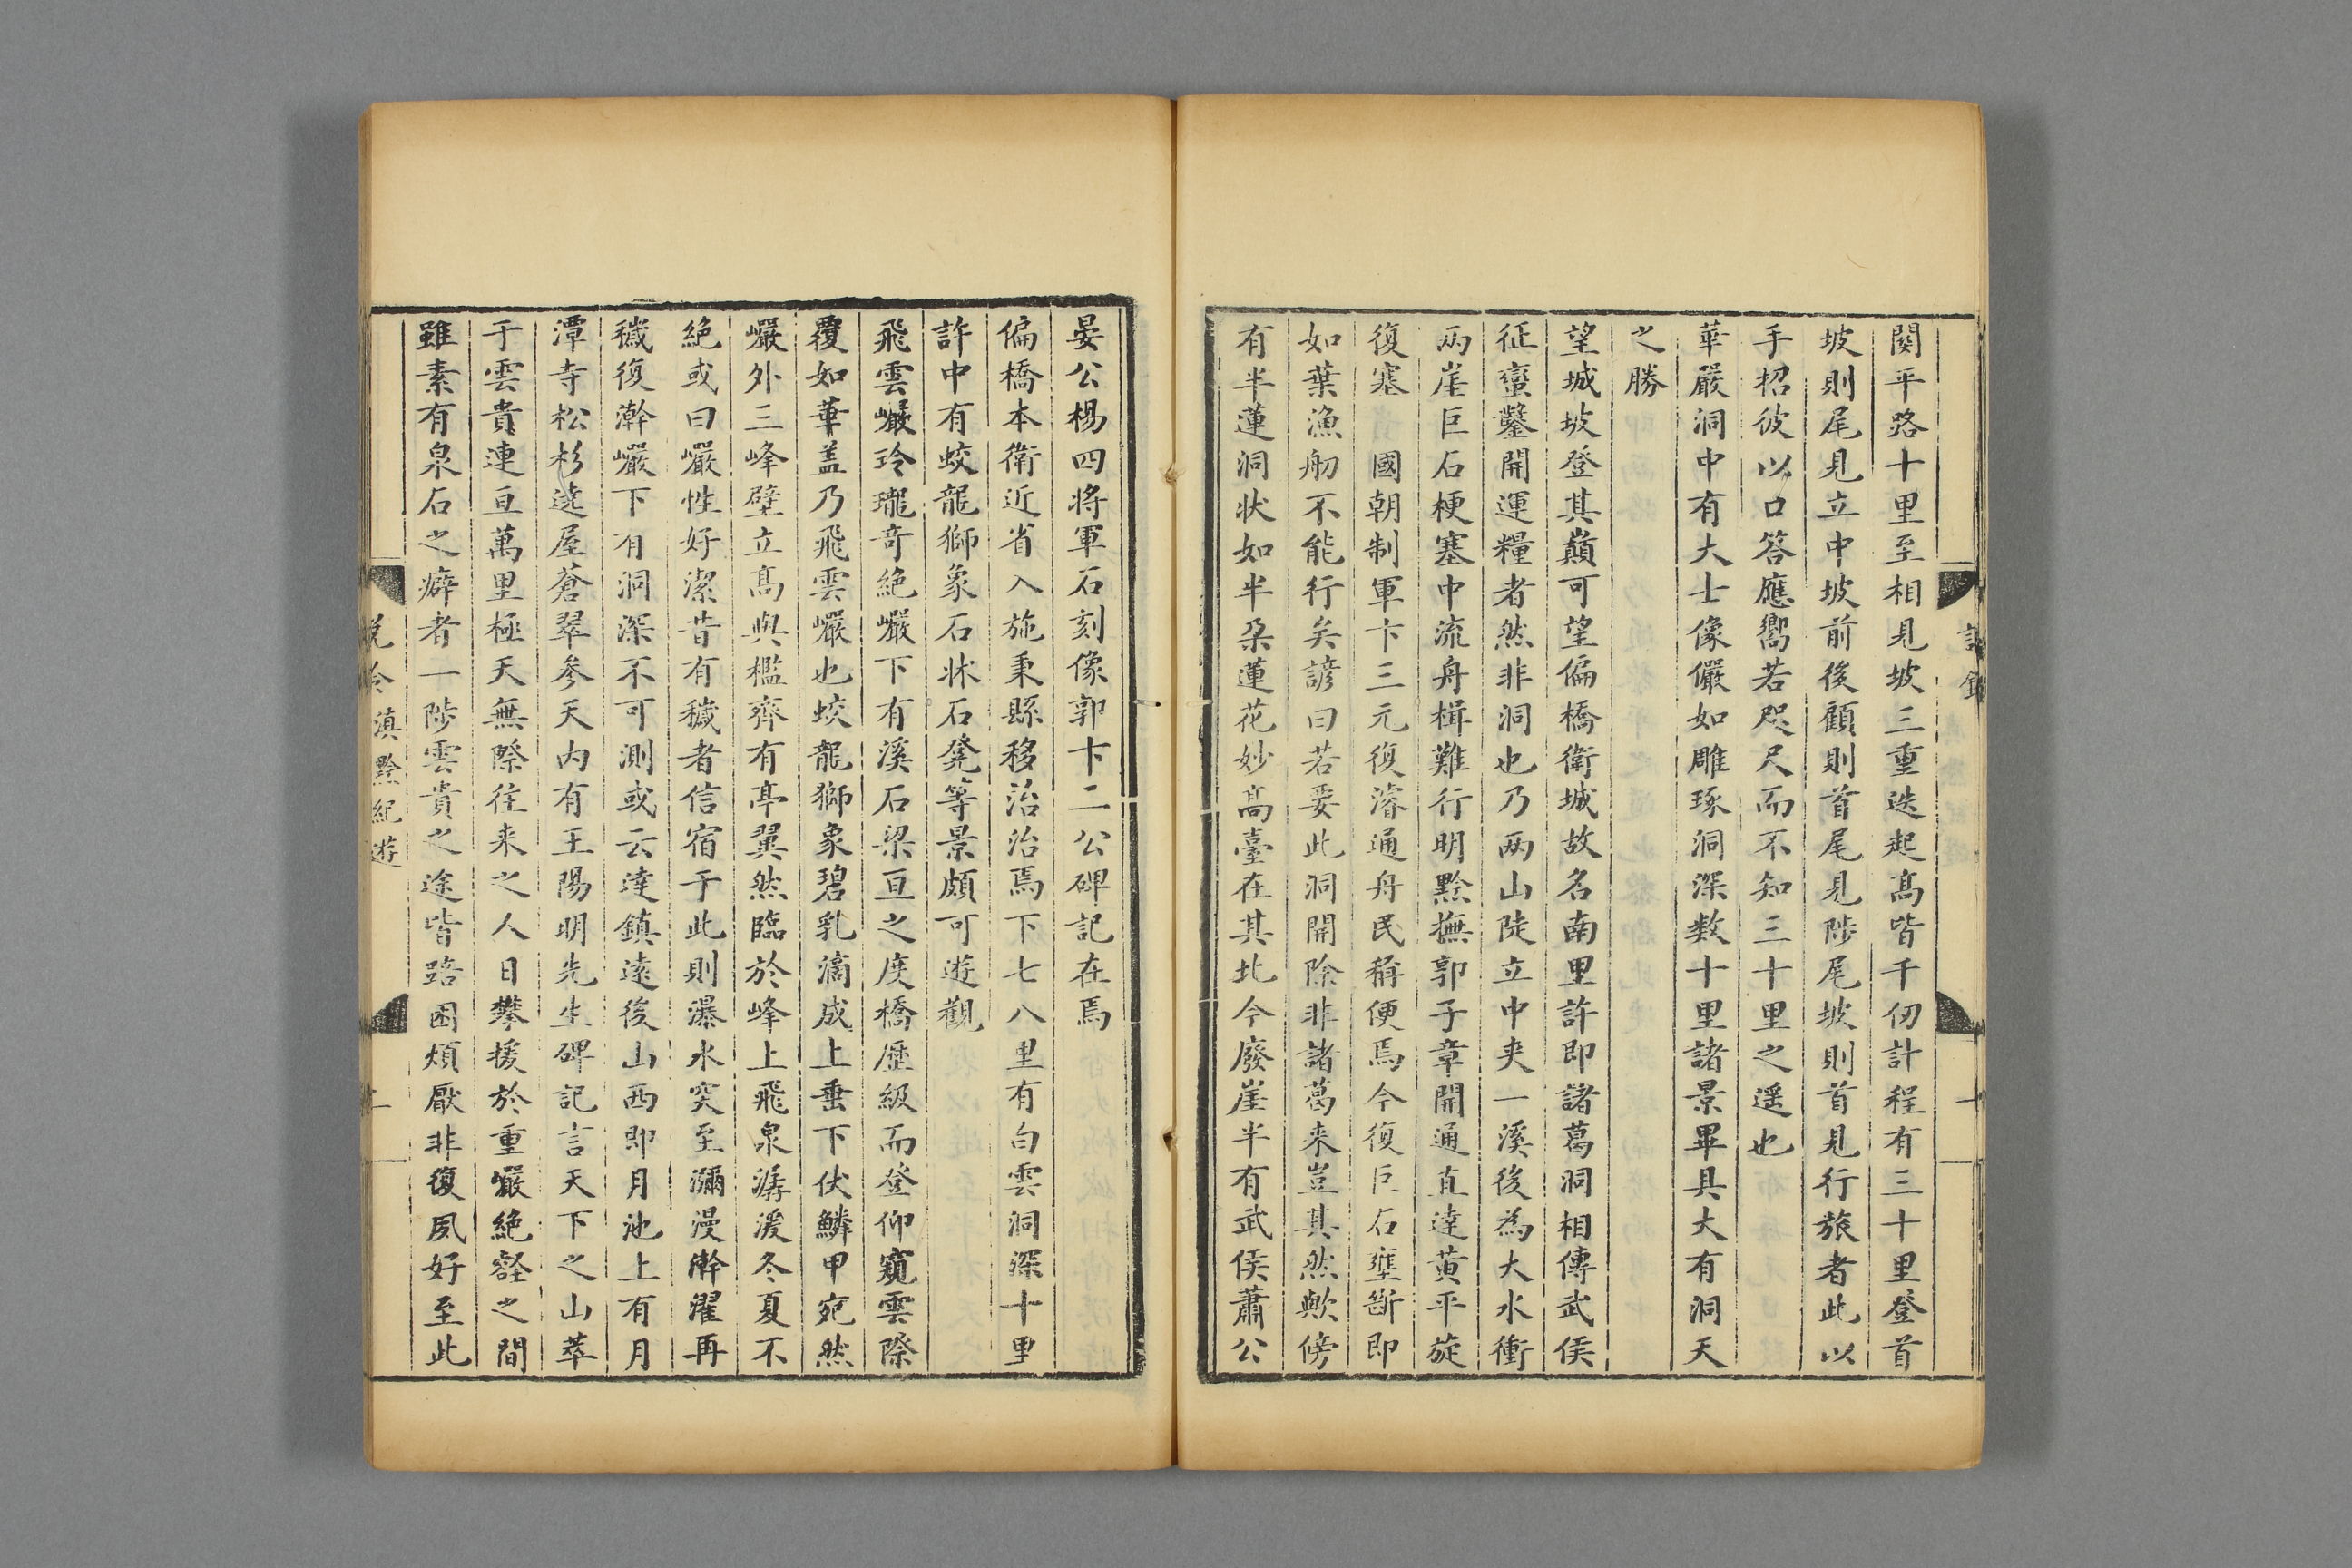 關平路十里至相見坡三重迭起髙皆千仞計程有三十里登首
坡則尾見立中坡前後顧則首尾見陟尾坡則首見行旅者此以
手招彼以口答應嚮若咫尺而不知三十里之遥也
華嚴洞中有大士像儼如雕琢洞深数十里諸景畢具大有洞天
之勝
望城坡登其巔可望偏橋衛城故名南里許即諸葛洞相傳武侯
征蠻鑿開運糧者然非洞也乃两山陡立中夾一溪後為大水衝
两崖巨石梗塞中流舟楫難行明黔撫郭子章開通直達黄平旋
復塞 國朝制軍卞三元復濬通舟民稱便焉今復巨石壅斷即
如葉漁舠不能行矣諺曰若要此洞開除非諸葛来豈其然歟傍
有半蓮洞状如半朶蓮花妙髙臺在其北今廢崖半有武侯蕭公
晏公楊四将軍石刻像郭卞二公碑記在焉
偏橋本衛近省入施秉縣移治治焉下七八里有白雲洞深十里
許中有蛟龍獅象石牀石凳等景頗可遊觀
飛雲巖玲瓏竒絶巖下有溪石梁亘之度橋歷級而登仰窺雲際
覆如華盖乃飛雲巖也蛟龍獅象碧乳滴成上垂下伏鱗甲宛然
巖外三峰壁立髙與檻齊有亭翼然臨於峰上飛泉潺湲冬夏不
絶或曰巖性好潔昔有穢者信宿于此則瀑水突至瀰漫澣濯再
穢復澣巖下有洞深不可測或云達鎮遠後山西即月池上有月
潭寺松杉遶屋蒼翠參天内有王陽明先生碑記言天下之山萃
于雲貴連亘萬里極天無際往来之人日攀援於重巖絶壑之間
雖素有泉石之癖者一陟雲貴之途皆踣困煩厭非復夙好至此
説鈴 滇黔紀遊